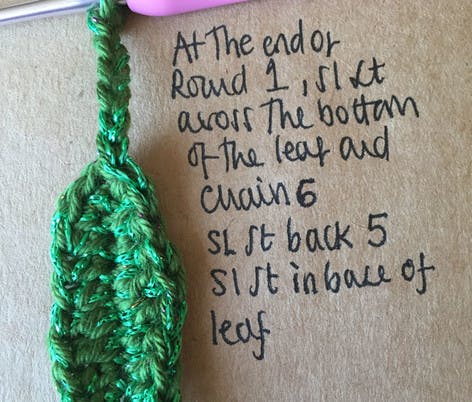 At The end of
Round 1, sl st
across The bottom
of the leaf and
Chain 6
SL st back 5
Sl st in base of
leaf